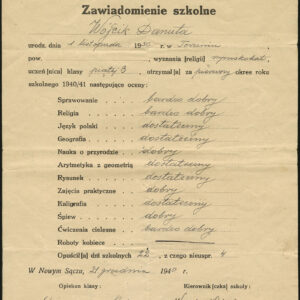 Zawiadomienie szkolne
Wójcik Danuta
urodz. dnia 1 listopada 19 r. w Toruniu
pow. wyznania (religii) rzymskokat.
uczeń (nica) klasy piątej B, otrzymał za pierwszy okres roku
szkolnego 1940/41 następujące oceny:
Sprawowanie bardzo dobry
Religia bardzo dobry
Język polski dostateczny
Geografia dostateczny
Nauka o przyrodzie dobry
Arytmetyka z geometrią dostateczny
Rysunek dostateczny
Zajęcia praktyczne dobry
Kaligrafia dostateczny
Śpiew dobry
Ćwiczenia cielesne bardzo dobry
Roboty kobiece
Opuścił(a) dni szkolnych 22, z czego nieuspr. 4
W Nowym Sączu, 21 grudnia 1940 r.
Opiekun klasy: Kierownik(czka) szkoły: